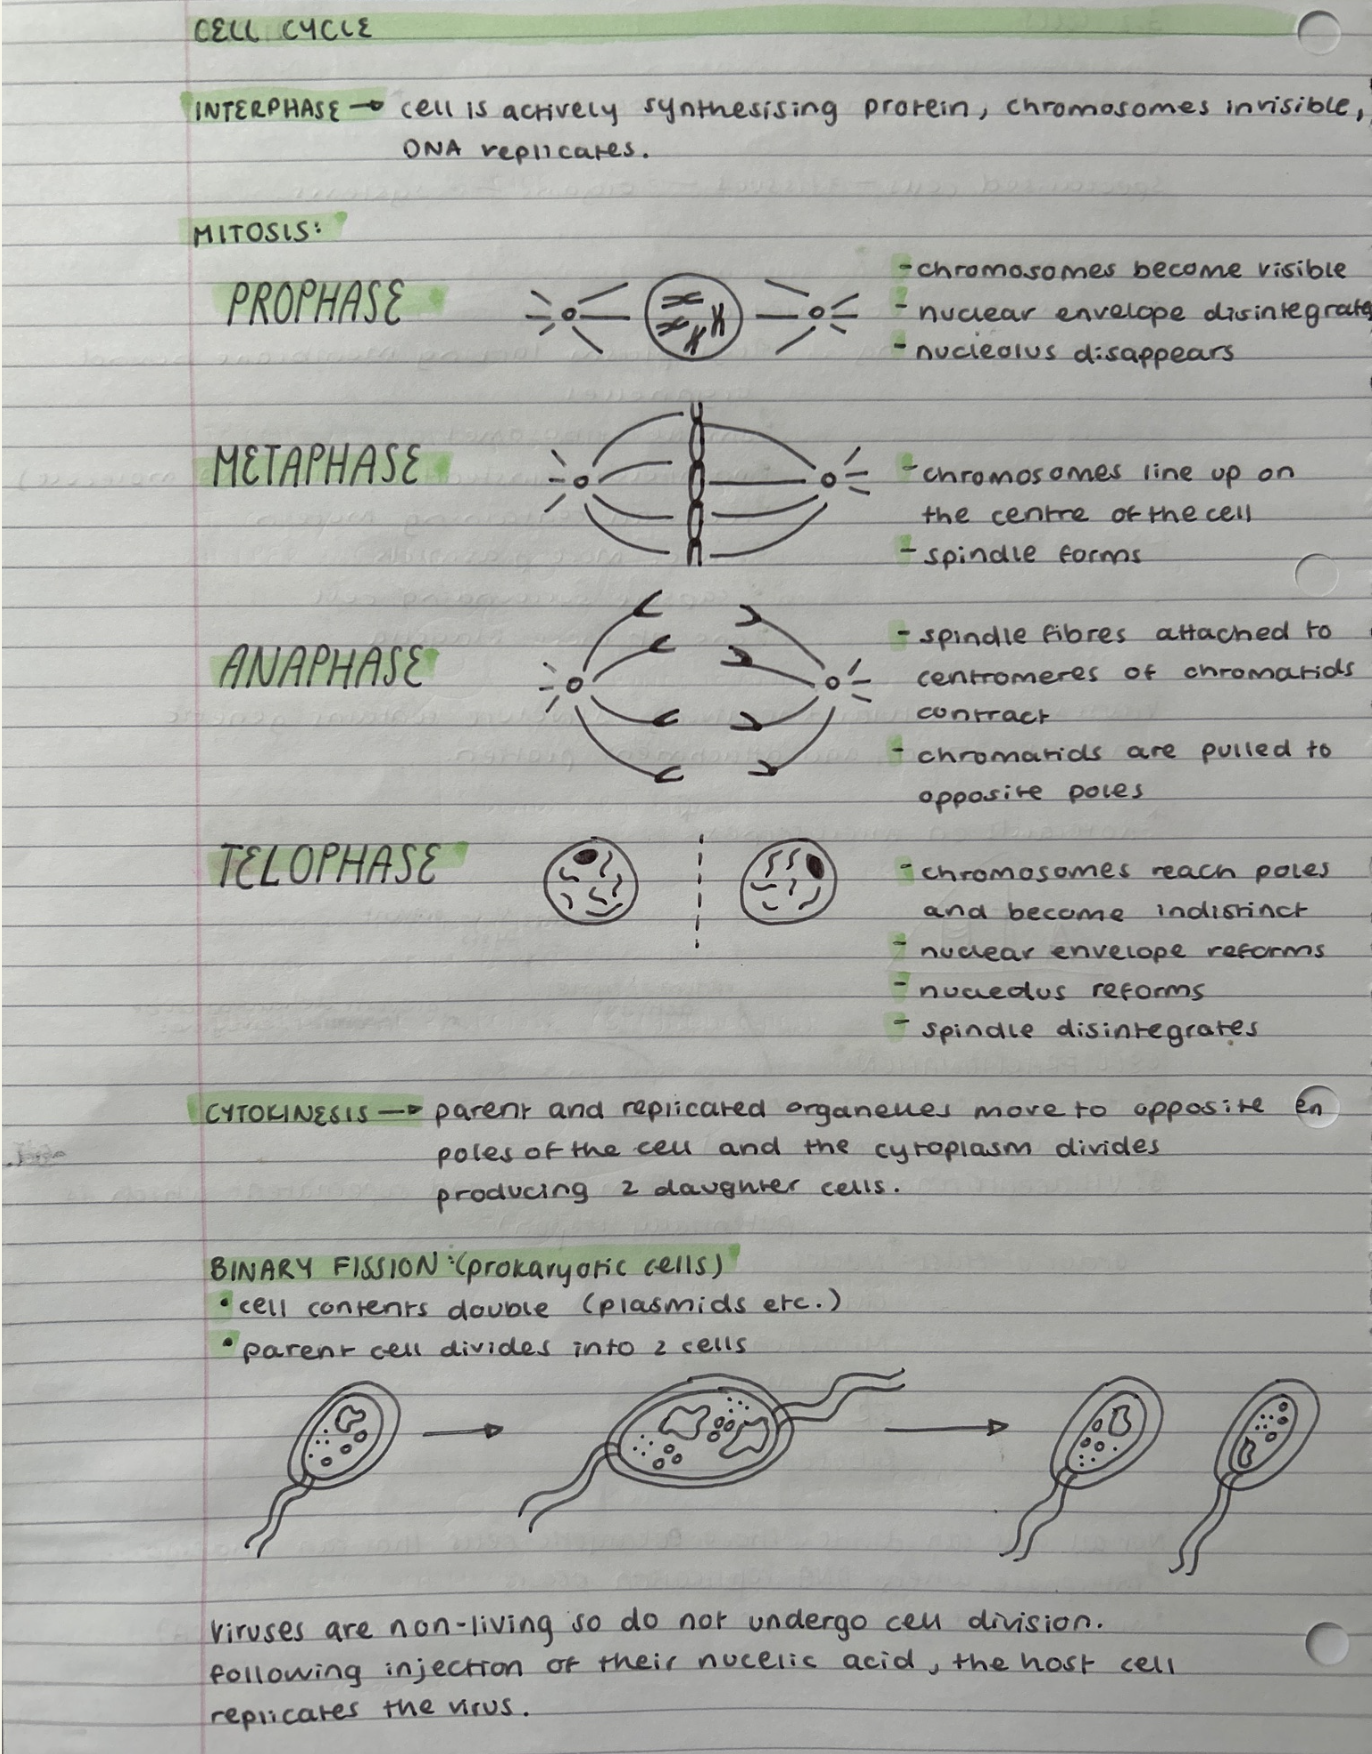 CELL CYCLE
INTERPHASE → cell is actively synthesising protein, chromosomes invisible,
DNA replicates.
MITOSIS:
PROPHASE
- chromosomes become visible
- nuclear envelope disintegrate
- nucleolus disappears
METAPHASE
- chromosomes line up on
the centre of the cell
- spindle forms
ANAPHASE
- spindle fibres attached to
centromeres of chromatids
contract
- chromatids are pulled to
opposite poles
TELOPHASE
- chromosomes reach poles
and become indistinct
- nuclear envelope reforms
- nucleolus reforms
- spindle disintegrates
CYTOKINESIS → parent and replicated organelles move to opposite en
poles of the cell and the cytoplasm divides
producing 2 daughter cells.
BINARY FISSION: (prokaryotic cells)
• cell contents double (plasmids etc.)
• parent cell divides into 2 cells
Viruses are non-living so do not undergo cell division.
following injection of their nucelic acid, the host cell
replicates the virus.